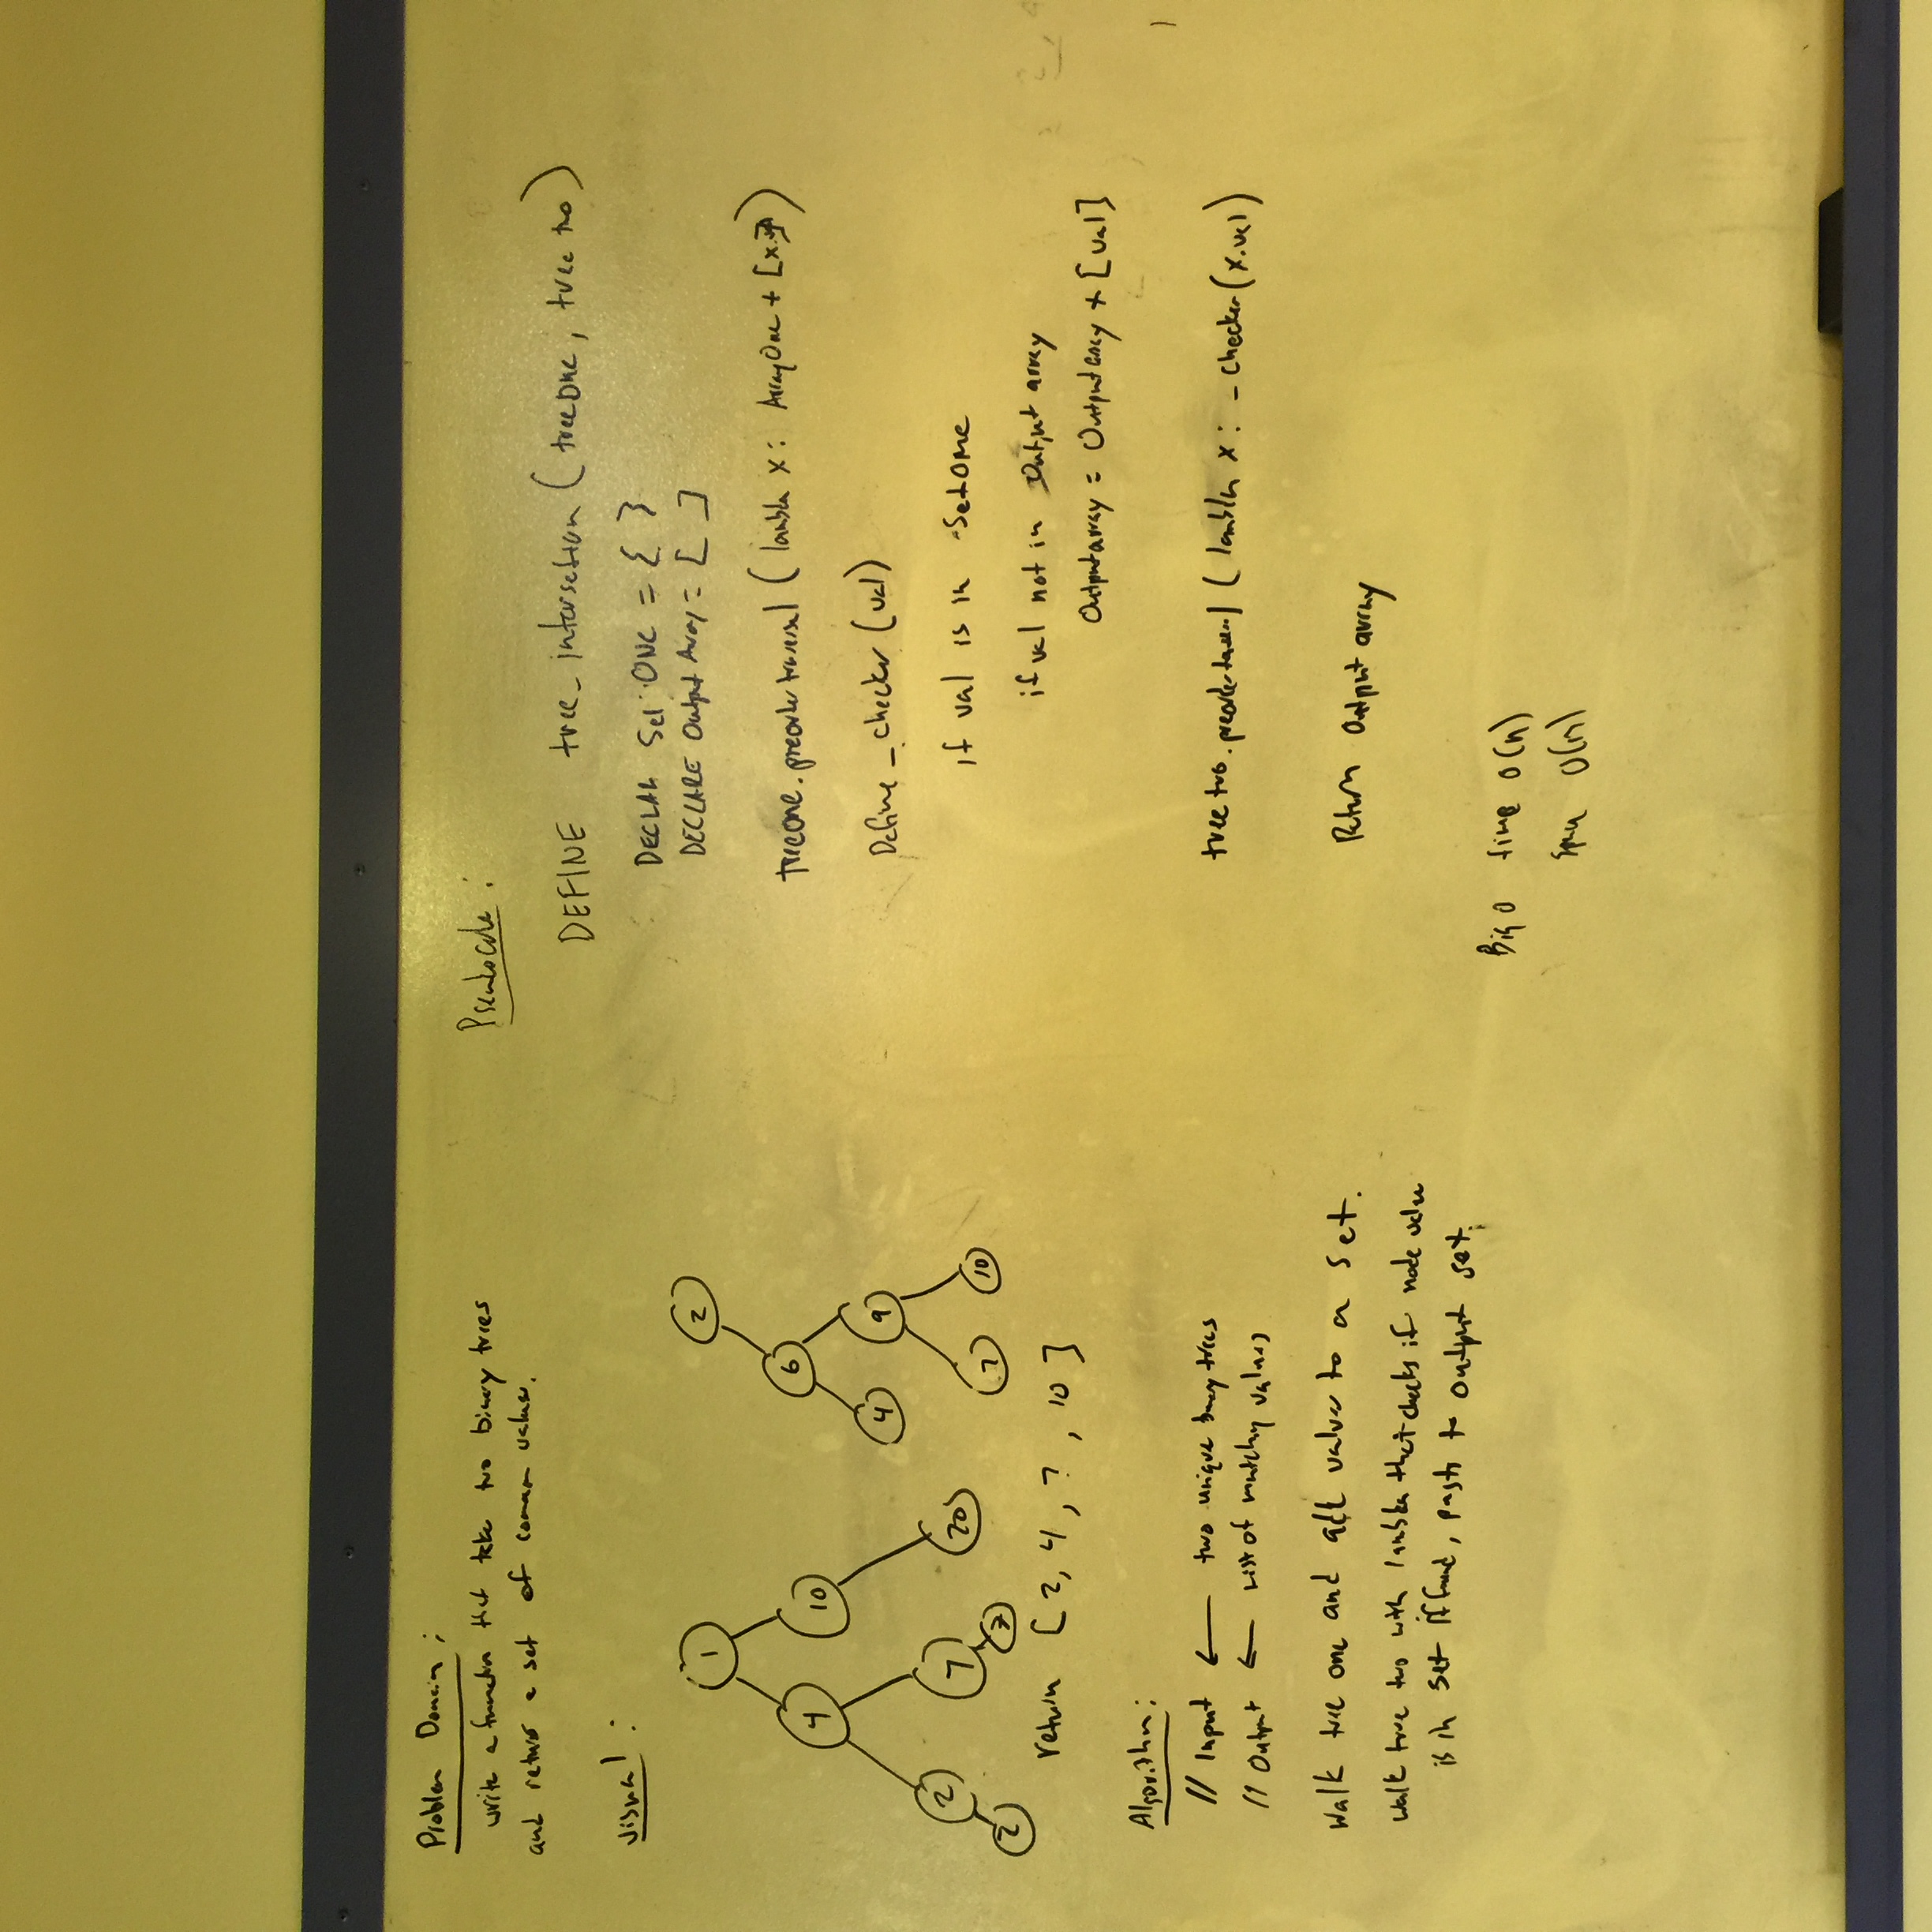 Problem Domain :
write a function that take two binary trees
and return a set of common values.
Visual :
1
2
4
10
6
4
9
2
7
20
7
10
2
7
return [ 2, 4, 7, 10 ]
Algorithm :
// Input ← two unique binary trees
// Output ← List of matching values
Walk tree one and add values to a set.
Walk tree two with lambda that checks if node value
is in set if found, push to output set.
Pseudocode :
DEFINE tree_intersection ( treeOne, tree two )
DECLAR Set ONE = { }
DECLARE Output Array = [ ]
treeone.preordertraversal ( lambda x : ArrayOne + [x.val] )
Define _checker (val)
if val is in SetOne
if val not in Output array
Outputarray = Outputarray + [val]
treetwo.preordertraversal ( lambda x : _checker (x.val)
Return Output array
Big O time O(n)
Space O(n)